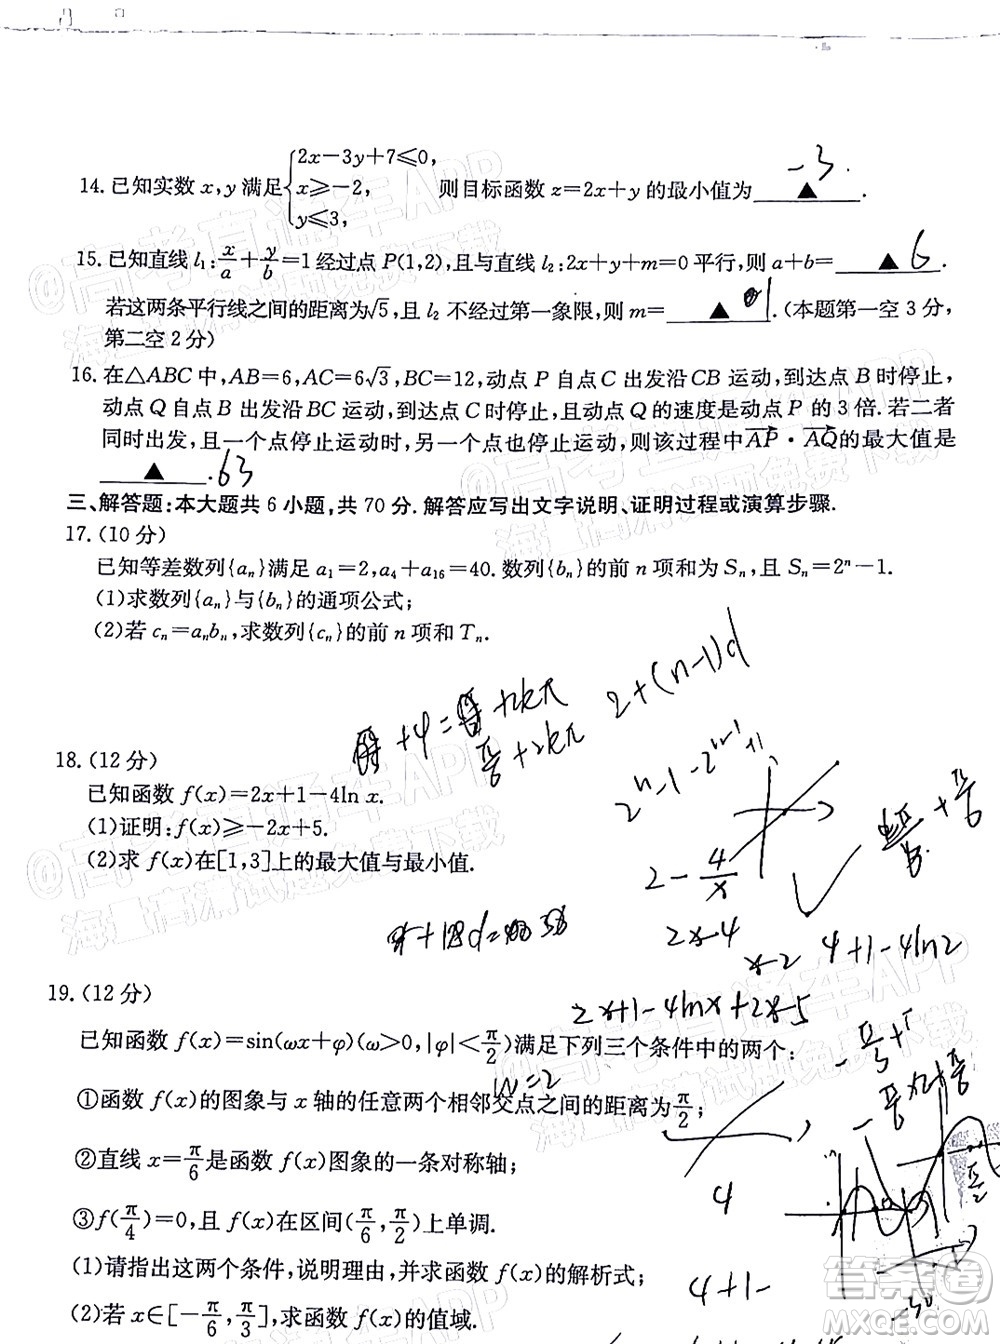 14. 已知实数 x, y 满足 { 2x−3y+7≤0, x≥−2, y≤3, 则目标函数 z=2x+y 的最小值为 ▲ .
−3.
15. 已知直线 l₁: x/a + y/b =1 经过点 P(1,2), 且与直线 l₂: 2x+y+m=0 平行, 则 a+b= ▲ 6 .
若这两条平行线之间的距离为√5, 且 l₂ 不经过第一象限, 则 m= ▲ . (本题第一空 3 分,
第二空 2 分)
16. 在△ABC 中, AB=6, AC=6√3, BC=12, 动点 P 自点 C 出发沿 CB 运动, 到达点 B 时停止,
动点 Q 自点 B 出发沿 BC 运动, 到达点 C 时停止, 且动点 Q 的速度是动点 P 的 3 倍. 若二者
同时出发, 且一个点停止运动时, 另一个点也停止运动, 则该过程中 AP→ · AQ→ 的最大值是
▲ . 63
三、解答题: 本大题共 6 小题, 共 70 分. 解答应写出文字说明、证明过程或演算步骤.
17. (10 分)
已知等差数列{aₙ}满足 a₁=2, a₄+a₁₆=40. 数列{bₙ}的前 n 项和为 Sₙ, 且 Sₙ=2ⁿ−1.
(1)求数列{aₙ}与{bₙ}的通项公式;
(2)若 cₙ=aₙbₙ, 求数列{cₙ}的前 n 项和 Tₙ.
2+(n−1)d
+φ= +2kπ
π/6 +2kπ
18. (12 分)
已知函数 f(x)=2x+1−4ln x.
(1)证明: f(x)≥−2x+5.
(2)求 f(x)在[1,3]上的最大值与最小值.
2ⁿ−1−2ⁿ⁻¹+1
2−4/x
2x−4
x−2
4+1−4ln2
19. (12 分)
2x+1−4lnx+2x−5
已知函数 f(x)=sin(ωx+φ)(ω>0, |φ|<π/2)满足下列三个条件中的两个:
w=2
①函数 f(x)的图象与 x 轴的任意两个相邻交点之间的距离为π/2;
②直线 x=π/6是函数 f(x)图象的一条对称轴;
③f(π/4)=0, 且 f(x)在区间(π/6, π/2)上单调.
4
(1)请指出这两个条件, 并求函数 f(x)的解析式;
4+1−
(2)若 x∈[−π/6, π/3], 求函数 f(x)的值域.
@高考直通车APP
海量高清试题免费下载
@高考直通车APP
海量高清试题免费下载
@高考直通车APP
海量高清试题免费下载
@高考直通车APP
海量高清试题免费下载
答案圈
MXQE.COM